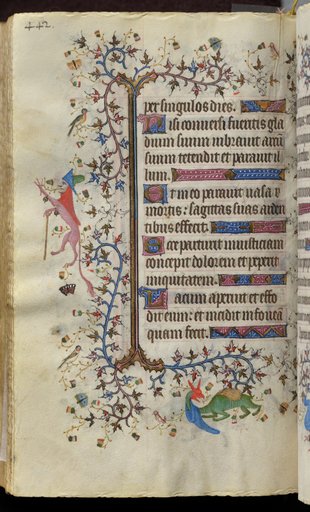 442.
per singulos dies.
Nisi conversi fueritis gla
dium suum vibravit arcu
suum tetendit et paravit il
lum.
Et in eo paravit vasa
mortis: sagittas suas arden
tibus effecit.
Ecce parturit iniusticiam
concepit dolorem et peperit
iniquitatem.
Lacum aperuit et effo
dit eum: et incidit in fovea
quam fecit.